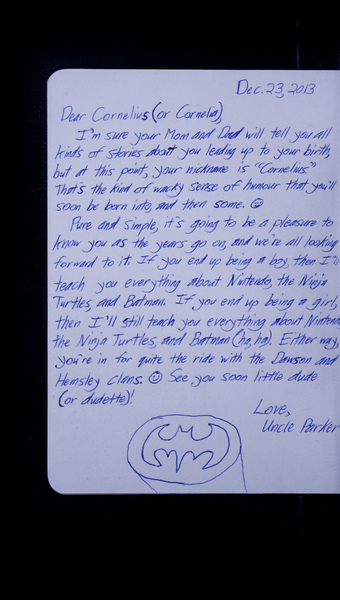 Dec. 23, 2013
Dear Cornelius (or Cornelia),
I'm sure your Mom and Dad will tell you all
kinds of stories about you leading up to your birth,
but at this point, your nickname is "Cornelius".
That's the kind of wacky sense of humour that you'll
soon be born into, and then some. ☺
Pure and simple, it's going to be a pleasure to
know you as the years go on, and we're all looking
forward to it. If you end up being a boy, then I'll
teach you everything about Nintendo, the Ninja
Turtles, and Batman. If you end up being a girl,
then I'll still teach you everything about Nintendo,
the Ninja Turtles, and Batman (ha, ha). Either way,
you're in for quite the ride with the Dawson and
Hemsley clans. ☺ See you soon little dude
(or dudette)!
Love,
Uncle Parker